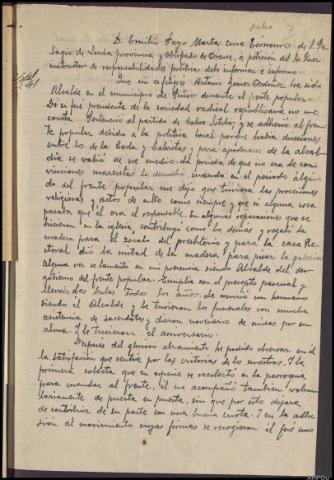 D. Emilio Fayo Marta cura Ecónomo de S. Pe-
lagio de Lorda provincia y obispado de Orense, a petición del Sr Juez
instructor de responsabilidades políticas debo informar e informo:
Que mi feligrés Antonio Gomez Cordoñez, ha sido
Alcalde en el municipio de Piñor durante el frente popular.
De si fué presidente de la sociedad radical republicana no me
consta. Perteneció al partido de Calvo Sotelo; y se adhirió al fren-
te popular debido a la política local porque había disensiones
entre los de la Ceda y Calvistas; y para apoderarse de la alcal-
día se valió de ese medio. La prueba de que no era de con-
vicciones marxistas lo demostró cuando en el período álgi-
do del frente popular me dijo que tuviera las procesiones
religiosas y actos de culto como siempre y que si alguna cosa
pasaba que él era el responsable. En algunas reparaciones que se
hicieron en la iglesia, contribuyó como los demás y regaló la
madera para el zócalo del presbiterio y para la casa Re-
toral dió la mitad de la madera para pisar la galería
Alguna vez se lamentó en mi presencia siendo Alcalde del des-
gobierno del frente popular. Cumplía con el precepto pascual y
llevaba bulas todos los años. Le murió un hermano
siendo él Alcalde y le hicieron los funerales con mucha
asistencia de sacerdotes y dieron novenario de misas por su
alma. Y le hicieron el aniversario.
Después del glorioso alzamiento he podido observar en él
la satisfacción que sentía por las victorias de los nuestros. Y la
primera colecta que en especie se recolectó en la parroquia
para mandar al frente, él me acompañó también volun-
tariamente de puerta en puerta, sin que por esto dejara
de contribuir de su parte con una buena cuota. Y en la adhe-
sión al movimiento cuyas firmas se recogieron él fué uno